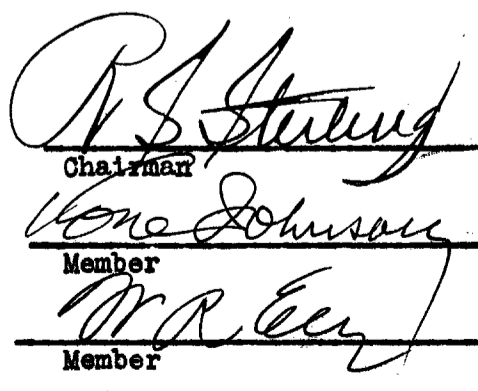 R S Sterling
Chairman
Cone Johnson
Member
W R Ely
Member